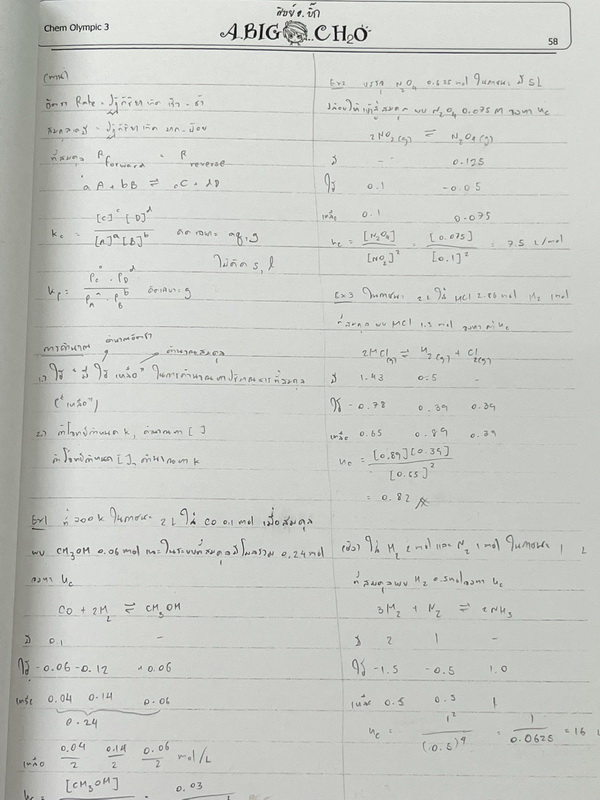 Chem Olympic 3
ศิษย์ อ. บิ๊ก
A.BIG ..CH2O
58
อัตรา Rate = ปฏิกิริยาเกิด เร็ว - ช้า
สมดุล = ปฏิกิริยาเกิด มาก - น้อย
ที่สมดุล R forward = R reverse
aA + bB ⇌ cC + dD
Kc = [C]^c [D]^d / [A]^a [B]^b คิดเฉพาะ aq, g
ไม่คิด s, l
Kp = Pc^c · PD^d / PA^a · PB^b คิดเฉพาะ g
การคำนวณ
คำนวณสมดุล
1.) ใช้ "มี ใช้ เหลือ" ในการคำนวณหาปริมาณสารที่สมดุล
("เหลือ")
2.) ถ้าโจทย์กำหนด k, คำนวณหา [ ]
ถ้าโจทย์กำหนด [ ], คำนวณหา k
Ex1 ที่ 200 k ในภาชนะ 2 L ใส่ CO 0.1 mol เมื่อสมดุล
พบ CH3OH 0.06 mol และในระบบที่สมดุลมีโมลรวม 0.24 mol
จงหา Kc
CO + 2H2 ⇌ CH3OH
มี 0.1 -
ใช้ -0.06 -0.12 +0.06
เหลือ 0.04 0.14 0.06
0.24
เหลือ 0.04/2 0.14/2 0.06/2 mol/L
Kc = [CH3OH] 0.03
Ex2 บรรจุ N2O4 0.625 mol ในภาชนะ 5 L
ปล่อยให้เข้าสู่สมดุล พบ N2O4 0.075 M จงหา Kc
2NO2(g) ⇌ N2O4(g)
มี - 0.125
ใช้ 0.1 -0.05
เหลือ 0.1 0.075
Kc = [N2O4] / [NO2]^2 = [0.075] / [0.1]^2 = 7.5 L/mol
Ex3 ในภาชนะ 2 L ใส่ HCl 2.86 mol H2 1 mol
ที่สมดุล พบ HCl 1.3 mol จงหาค่า Kc
2HCl(g) ⇌ H2(g) + Cl2(g)
มี 1.43 0.5 -
ใช้ -0.78 0.39 0.39
เหลือ 0.65 0.89 0.39
Kc = [0.89][0.39] / [0.65]^2
= 0.82
ใส่ H2 2 mol และ N2 1 mol ในภาชนะ 1 L
ที่สมดุลพบ H2 0.5 mol จงหา Kc
3H2 + N2 ⇌ 2NH3
มี 2 1 -
ใช้ -1.5 -0.5 1.0
เหลือ 0.5 0.5 1
Kc = 1^2 / (0.5)^4 = 1 / 0.0625 = 16